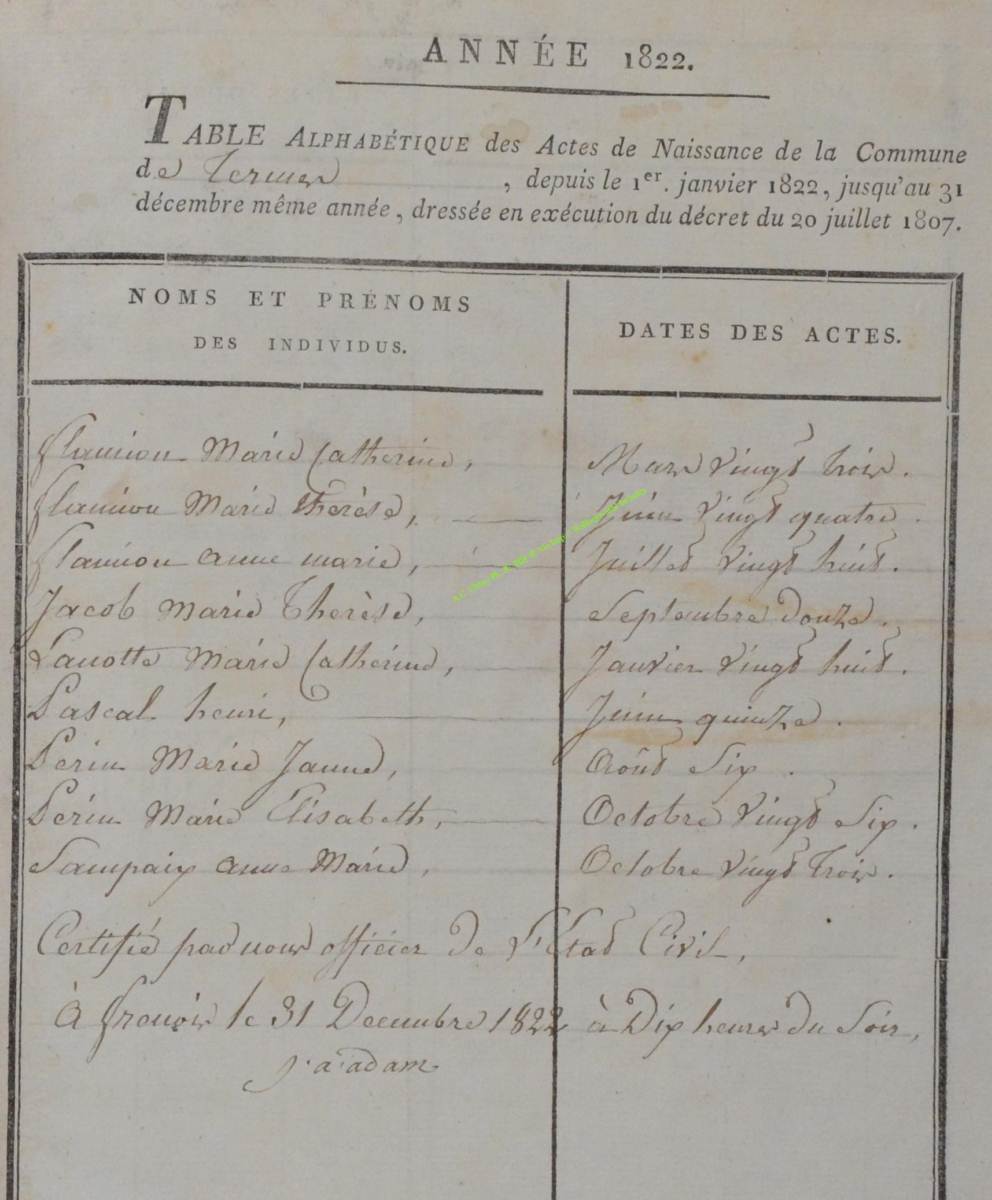 ANNÉE 1822.
TABLE ALPHABÉTIQUE des Actes de Naissance de la Commune
de Termes, depuis le 1er. janvier 1822, jusqu'au 31
décembre même année, dressée en exécution du décret du 20 juillet 1807.
NOMS ET PRÉNOMS
DES INDIVIDUS.
DATES DES ACTES.
flamion Marie Catherine, Mars vingt trois.
flamion Marie thérèse, Juin vingt quatre.
flamion anne marie, Juillet vingt huit.
Jacob Marie Thérèse, Septembre douze.
Lanotte Marie Catherine, Janvier vingt huit.
Pascal henri, Juin quinze.
Perin Marie Janne, Août Six.
Perin Marie Elisabeth, Octobre vingt Six.
Sampaix anne Marie, Octobre vingt trois.
Certifié par nous officier de L'Etat Civil,
À frenois le 31 Decembre 1822 à Dix heures du Soir,
j. a. adam